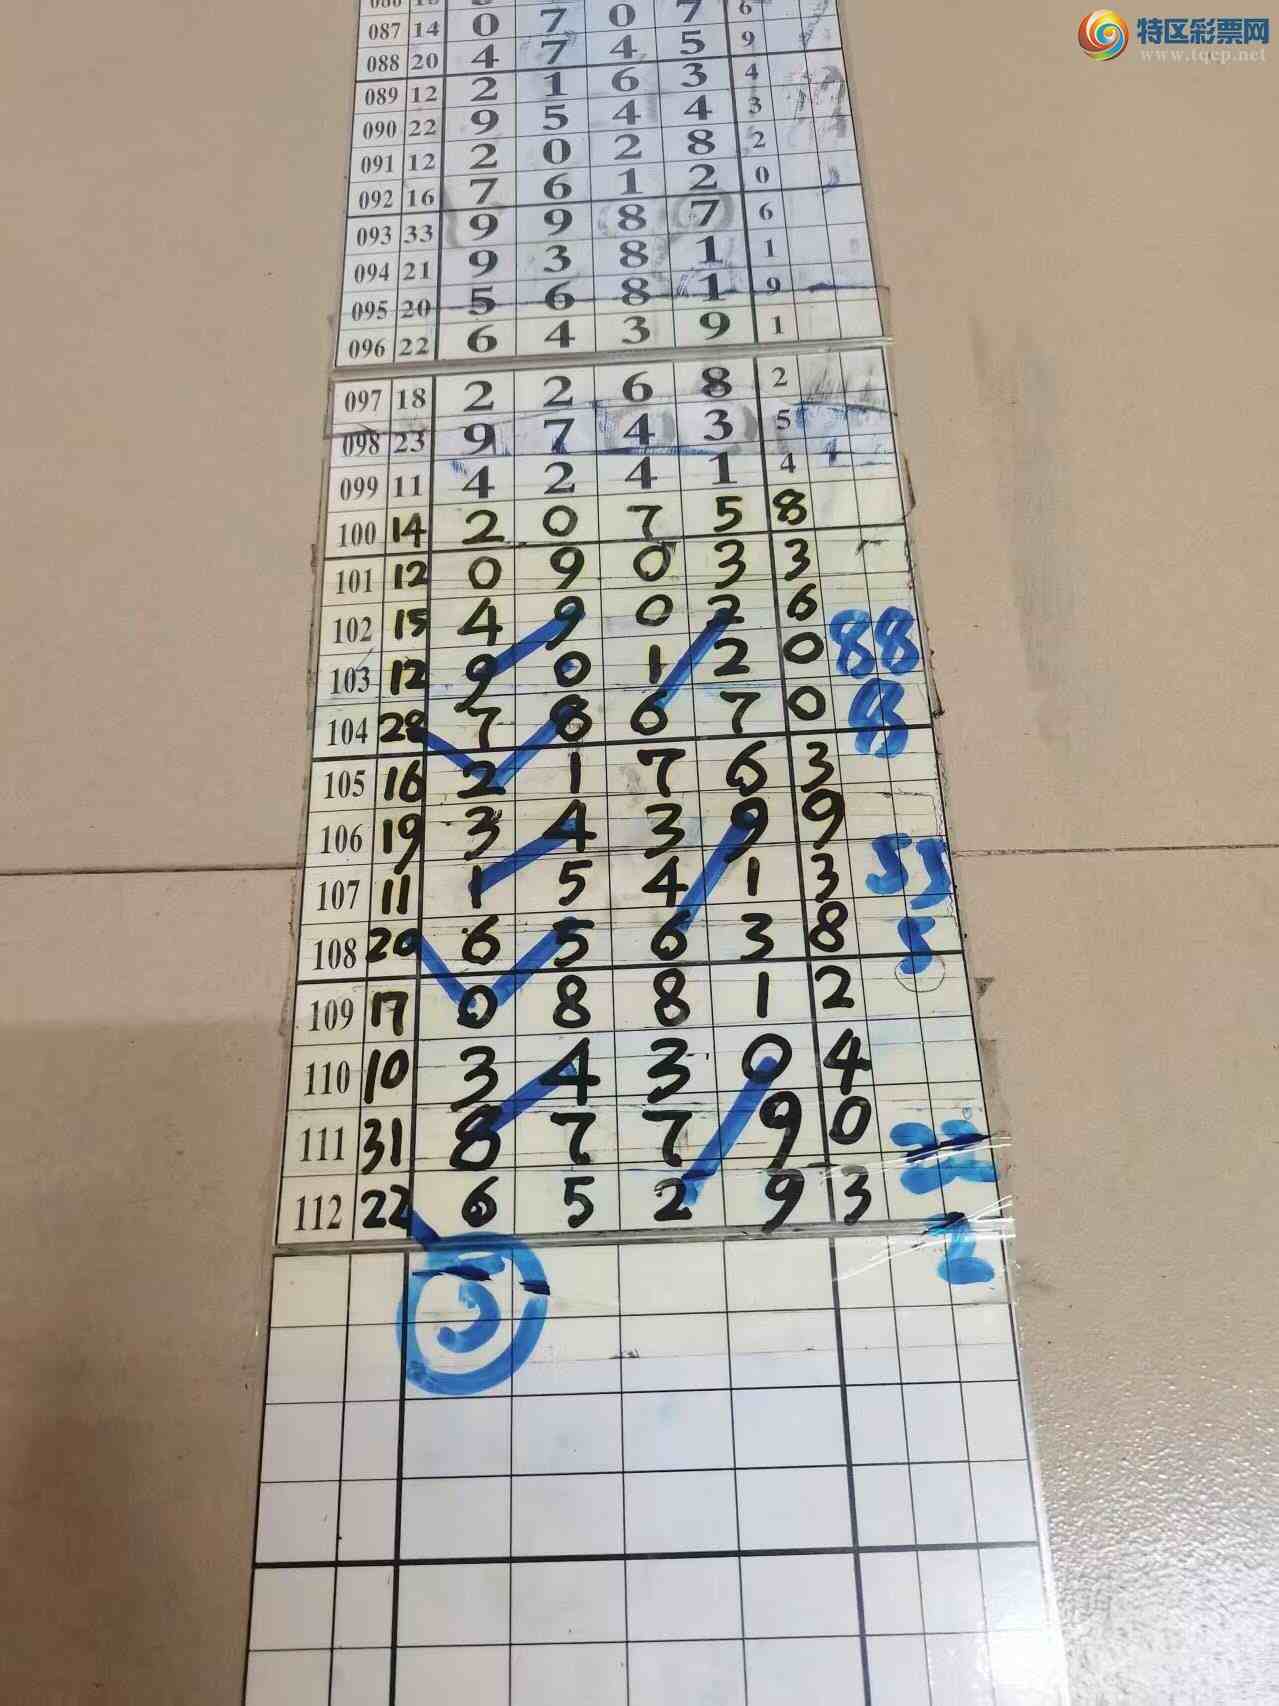 特区彩票网
www.tqcp.net
087 14 0 7 0 7 6
088 20 4 7 4 5 9
089 12 2 1 6 3 4
090 22 9 5 4 4 3
091 12 2 0 2 8 2
092 16 7 6 1 2 0
093 33 9 9 8 7 6
094 21 9 3 8 1 1
095 20 5 6 8 1 9
096 22 6 4 3 9 1
097 18 2 2 6 8 2
098 23 9 7 4 3 5
099 11 4 2 4 1 4
100 14 2 0 7 5 8
101 12 0 9 0 3 3
102 15 4 9 0 2 6
103 12 9 0 1 2 0 88
104 28 7 8 6 7 0 8
105 16 2 1 7 6 3
106 19 3 4 3 9 9
107 11 1 5 4 1 3 55
108 20 6 5 6 3 8 5
109 17 0 8 8 1 2
110 10 3 4 3 0 4
111 31 8 7 7 9 0 22
112 22 6 5 2 9 3
2